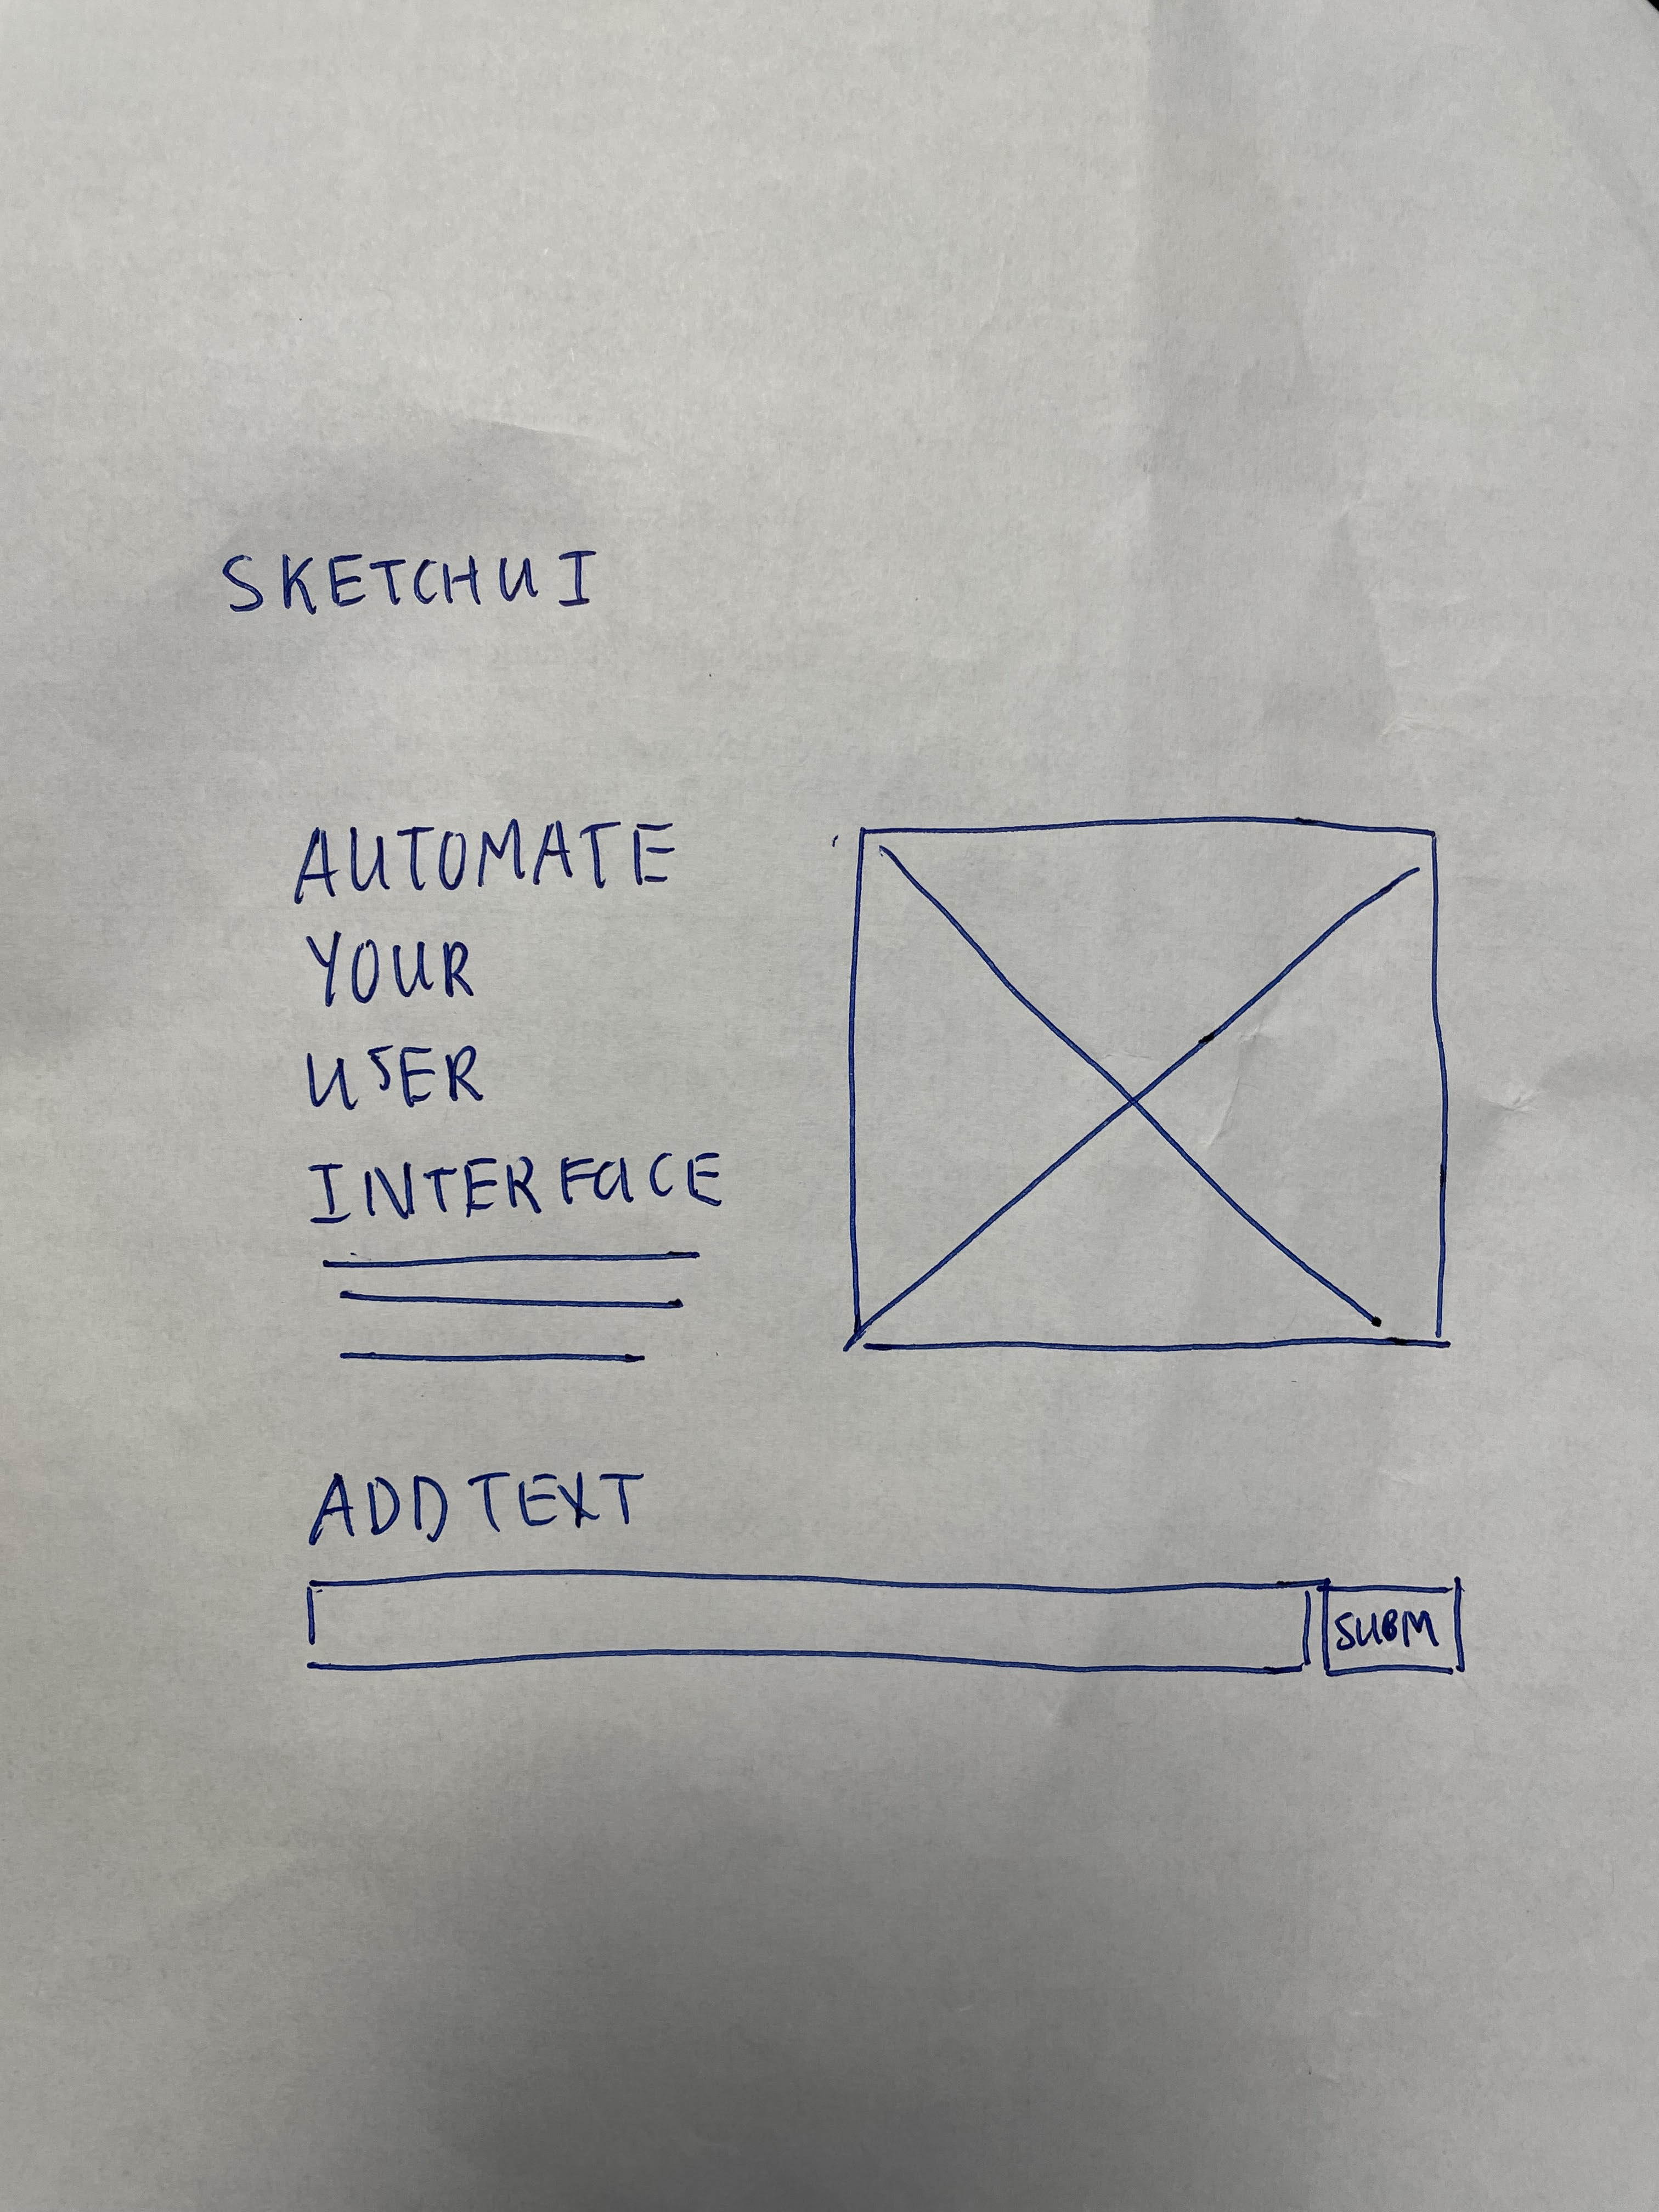 SKETCHUI
AUTOMATE
YOUR
USER
INTERFACE
ADD TEXT
SUBM